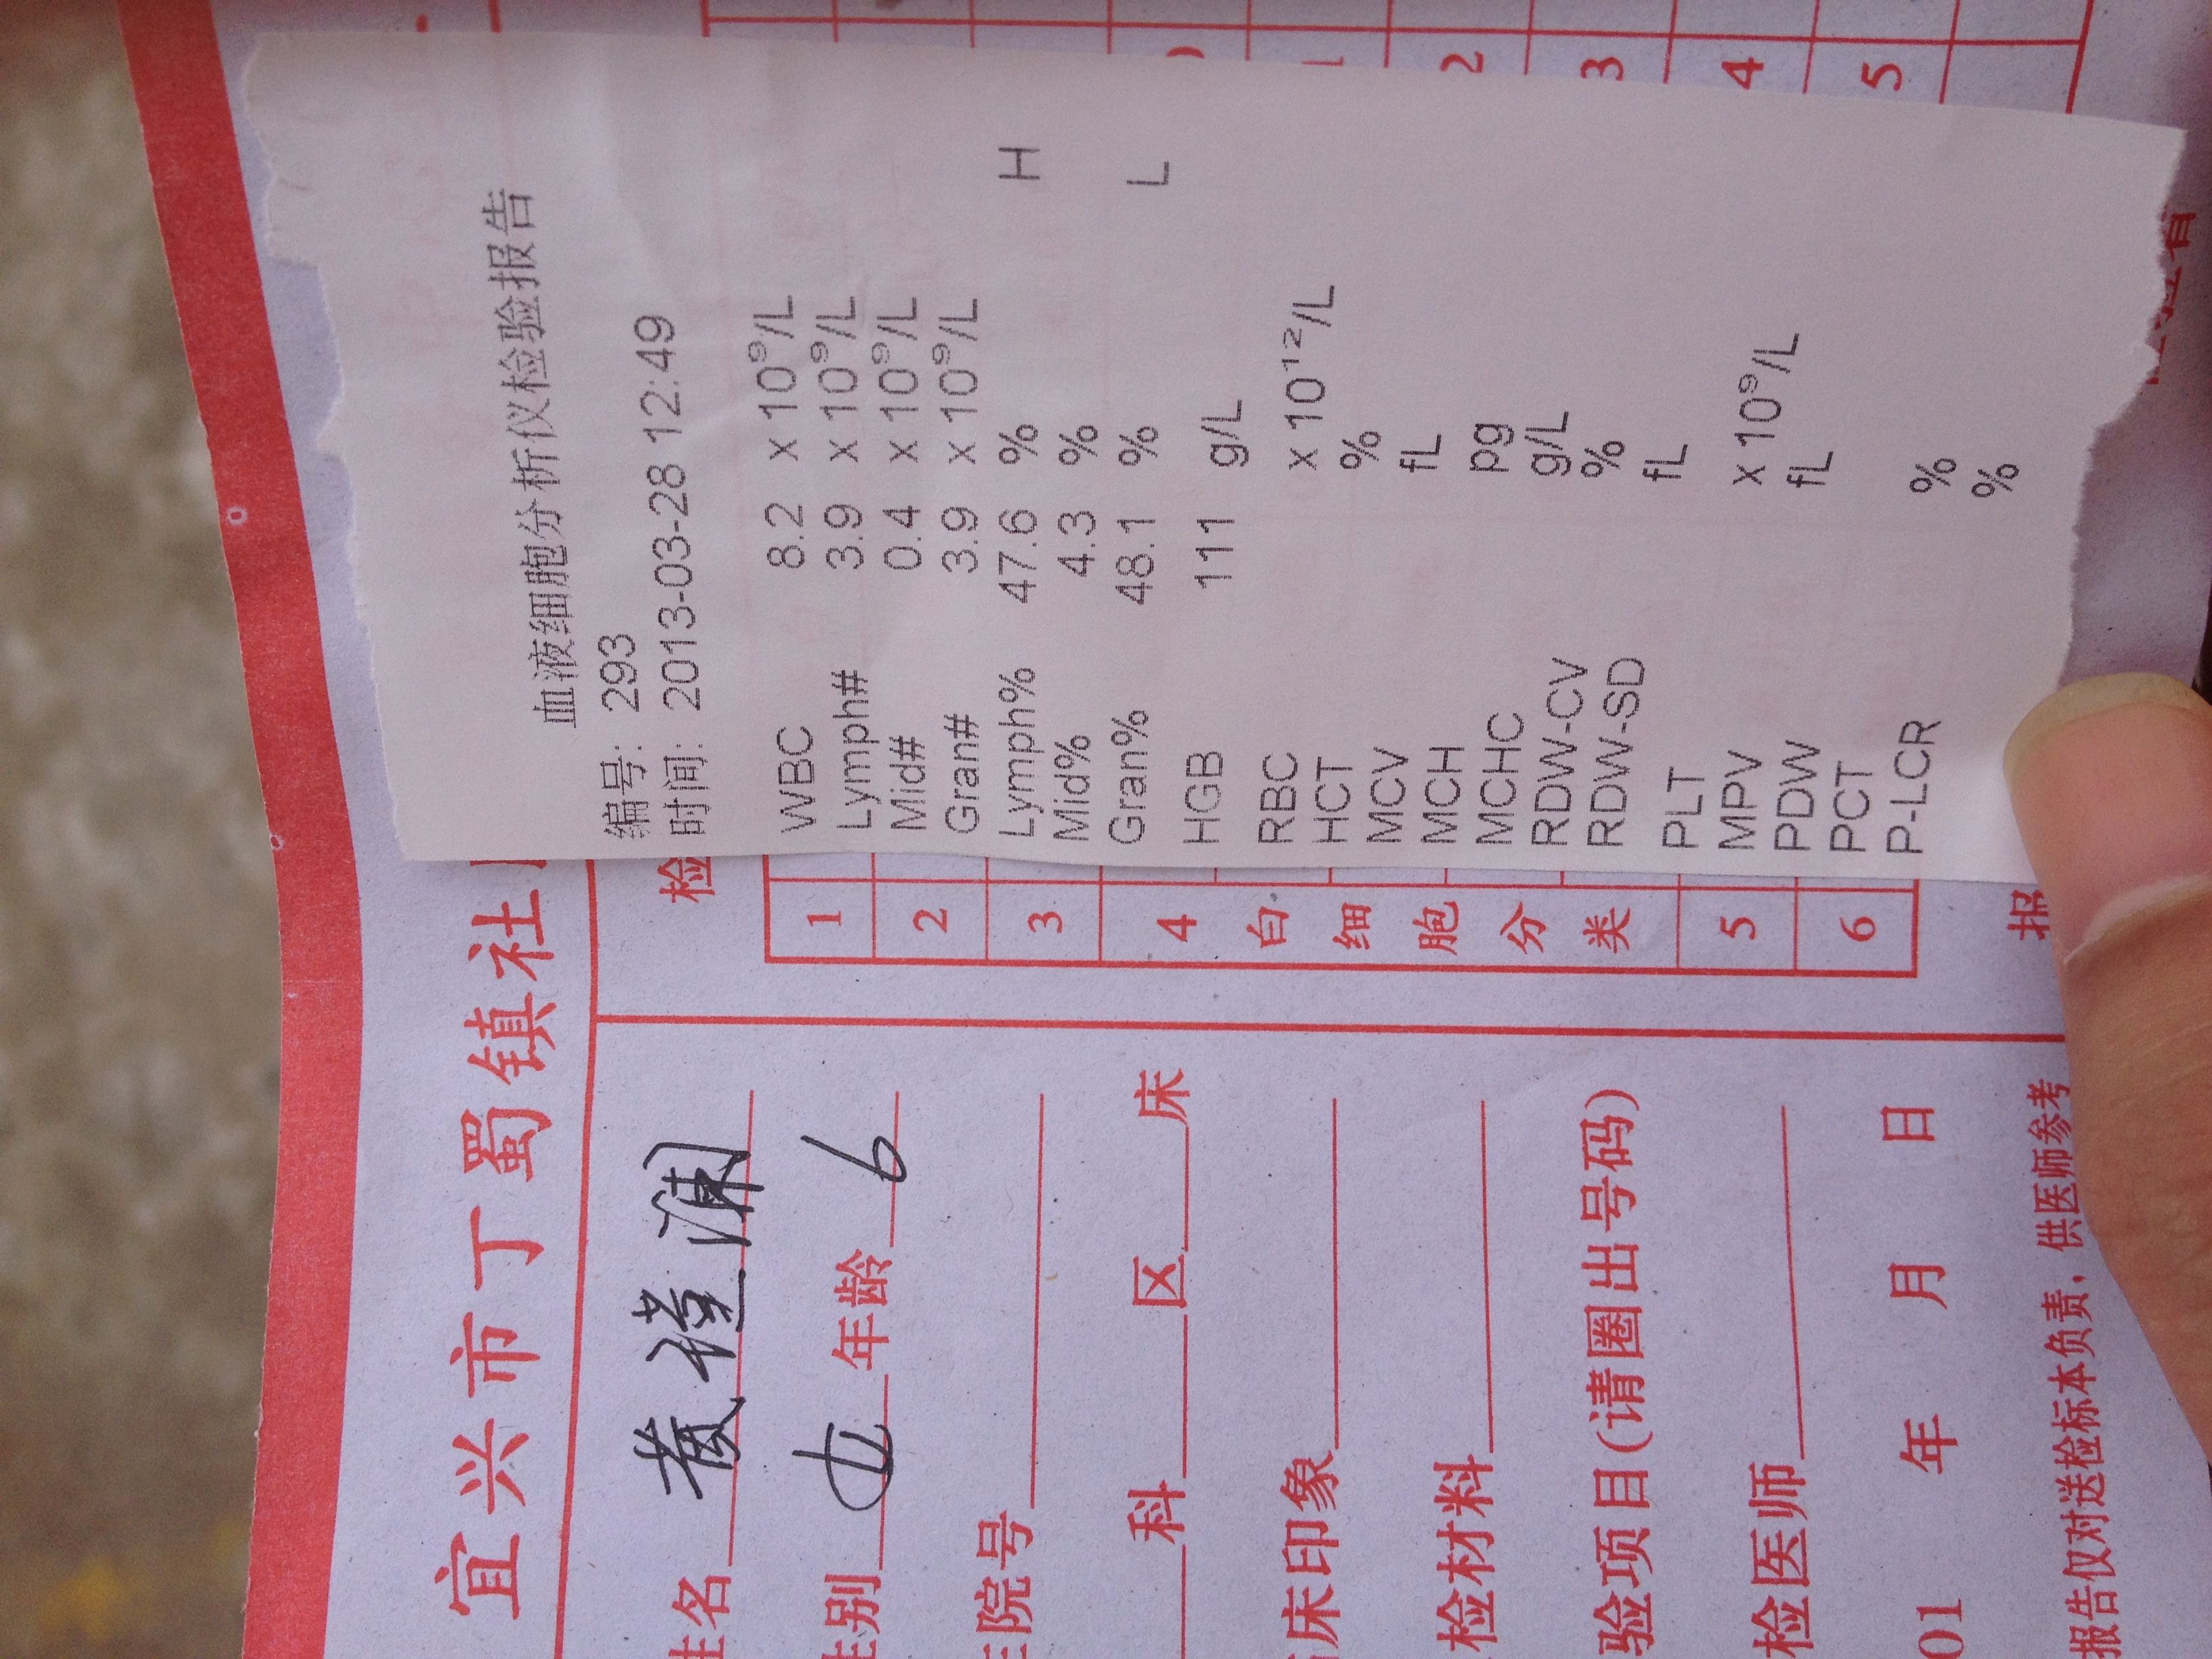 血液细胞分析仪检验报告
编号: 293
时间: 2013-03-28 12:49
WBC 8.2 x 10⁹/L
Lymph# 3.9 x 10⁹/L
Mid# 0.4 x 10⁹/L
Gran# 3.9 x 10⁹/L
Lymph% 47.6 % H
Mid% 4.3 %
Gran% 48.1 % L
HGB 111 g/L
RBC x 10¹²/L
HCT %
MCV fL
MCH pg
MCHC g/L
RDW-CV %
RDW-SD fL
PLT x 10⁹/L
MPV fL
PDW
PCT %
P-LCR %
宜兴市丁蜀镇社
姓名
性别 女 年龄 6
院号
科 区 床
床印象
检材料
验项目(请圈出号码)
检医师
01 年 月 日
报告仅对送检标本负责，供医师参考
检
1
2
3
4
白细胞分类
5
6
报
2
3
4
5